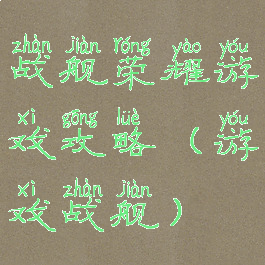 zhàn jiàn róng yào yóu
战舰荣耀游
xì gōng lüè yóu
戏攻略(游
xì zhàn jiàn
戏战舰)